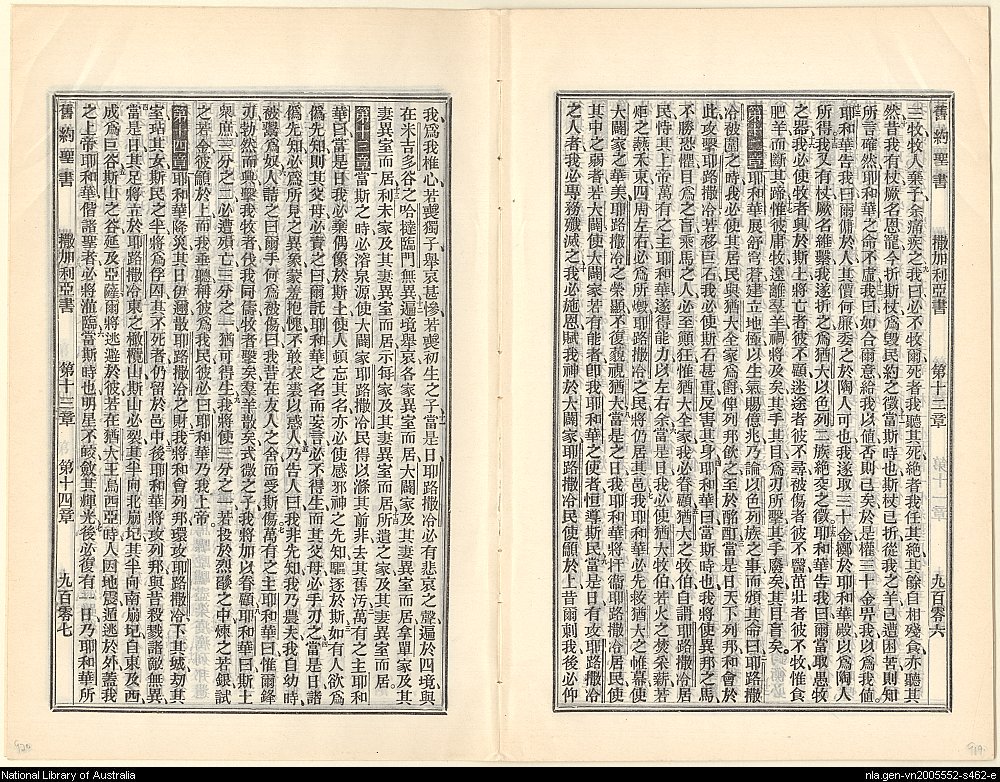 舊約聖書 撒加利亞書 第十二章 九百零六
三牧牧人棄予余痛疾之我曰必不牧爾死者我聽其死絕者我任其絕其餘自相殘食亦聽其
然昔我有杖厥名恩寵今折斯杖爲毀民約之徵當斯時也斯杖已折從我之羊已遭困苦則知
所言確然耶和華之命不虛我曰如合爾意給我以值否則已矣於是權三十金畀我以爲我値
耶和華告我曰爾傭於人其價何廉委之於陶人可也我遂取三十金擲於耶和華殿以爲陶人
所得我又有杖厥名維繫我遂折之爲猶大以色列二族絕交之徵耶和華告我曰爾當取愚牧
之器我必使牧者興於斯土將亡者彼不顧迷途者彼不尋被傷者彼不醫茁壯者彼不牧惟食
肥羊而斷其蹄惟彼庸牧遠離羣羊禍將及矣其手其目爲刃所擊其手廢矣其目盲矣
第十二章 耶和華展舒穹蒼建立地極以生氣賜億兆乃諭以色列族之事而頒其命曰耶路撒
冷被圍之時我必使其居民與猶大全家爲爵俾列邦飲之至於酩酊當是日天下列邦和會於
此攻擊耶路撒冷若移巨石我必使斯石甚重反害其身耶和華曰當斯時也我將使異邦之馬
不勝恐懼目爲之盲乘馬之人必至顚狂惟猶大全家我必眷顧猶大之牧伯自謂耶路撒冷居
民恃其上帝萬有之主耶和華遂得能力以左右余當是日我必使猶大牧伯若火之焚柴薪若
炬之燕禾東四周左右必燬列邦耶路撒冷之民將仍居其邑我耶和華必先救猶大之帷幕使
大闢家之華美耶路撒冷之榮顯不復藐視猶大當是之日我耶和華將扞衞耶路撒冷居民使
其中之弱者若大闢使大闢家若有能者卽我耶和華之使者恒導斯民當是日有攻耶路撒冷
之人者我必專務殲滅之我必施恩賦我神於大闢家耶路撒冷民使籲於上昔爾刺我後必仰
我爲我椎心若喪獨子舉哀甚慘若喪初生之子當是日耶路撒冷必有悲哀之聲遍於四境與
在米吉多谷之哈撻臨門無異遍境舉哀各家異室而居大闢家及其妻異室而居拿單家及其
妻異室而居利未家及其妻異室而居示每家及其妻異室而居所遺之家及其妻異室而居
第十三章 當斯之時必濬泉源使大闢家耶路撒冷民得以滌其前非去其舊汚萬有之主耶和
華曰當是日我必棄偶像於斯土使人頓忘其名亦必使感邪神之先知驅逐於斯如有人欲爲
僞先知則其父母必責之曰爾託耶和華之名而妄言必不得生而其父母必手刃之當是日諸
僞先知必爲所見之異象蒙羞抱愧不敢衣裘以惑人乃告人曰我非先知我乃農夫我自幼時
被鬻爲奴人詰之曰爾手何爲被傷曰我昔在友人之舍而受斯傷萬有之主耶和華曰惟爾鋒
刃勃然而興擊我牧者伐我同儔牧者擊矣羣羊散矣式微之子我將加以眷顧耶和華曰斯土
衆庶三分之二必遭殞亡三分之一猶可得生我將使三分之一若投於烈燄之中煉之若銀試
之若金彼籲於上而我垂聽稱彼爲我民彼必曰耶和華乃我上帝
第十四章 耶和華降災其日伊邇散耶路撒冷之財我將和會列邦環攻耶路撒冷下其城刧其
室玷其女斯民之半將爲俘囚其不死者仍留於邑中後耶和華將攻列邦與昔殺戮諸敵無異
當是日其足將立於耶路撒冷東之橄欖山斯山必裂其半向北崩圮其半向南崩圮自東及西
成爲巨谷斯山之谷延及亞薩爾將逃避於彼若在猶大王烏西亞時人因地震遁逃於外蓋我
之上帝耶和華偕諸聖者必將涖臨當斯時也明星不皎斂其輝光後必復有一日乃耶和華所
舊約聖書 撒加利亞書 第十三章 第十四章 九百零七
920
919
National Library of Australia
nla.gen-vn2005552-s462-e